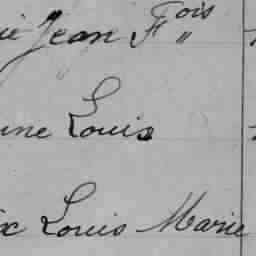 Jean Fois
Louis
Louis Marie